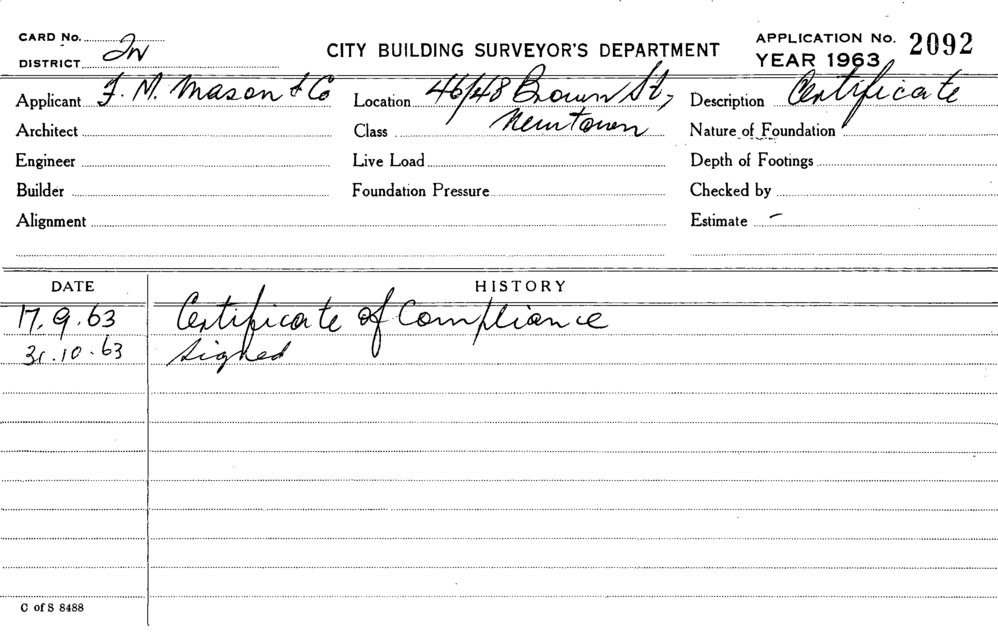 CARD No.
DISTRICT
CITY BUILDING SURVEYOR'S DEPARTMENT
APPLICATION No. 2092
YEAR 1963
Applicant F. M. Mason & Co Location 46/48 Brown St, Description Certificate
Architect Class Newtown Nature of Foundation
Engineer Live Load Depth of Footings
Builder Foundation Pressure Checked by
Alignment Estimate -
DATE HISTORY
17.9.63 Certificate of Compliance
31.10.63 Signed
C of S 8488